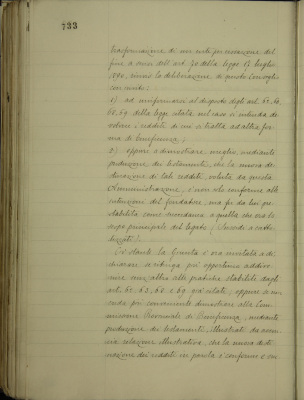 733
trasformazione di un ente per cessazione del
fine a sensi dell'art. 70 della legge 17 luglio
1890, rinviò la deliberazione di questo Consiglio
con invito:
1) ad uniformarsi al disposto degli art. 62. 66.
69 della legge citata nel caso si intenda de
volvere i redditi di cui si tratta ad altra for
ma di beneficenza;
2) oppure a dimostrare mediante
produzione dei testamenti, che la nuova de
stinazione di tali redditi, voluta da questa
Amministrazione, è non solo conforme alle
intenzioni del fondatore ma fu da lui pre
stabilita come secondaria a quella che era lo
scopo principale del legato
Ciò stante la Giunta è ora invitata a di
chiarare se ritenga più opportuno addive
nire alle pratiche stabilite dagli
art. 62. 66 e 69 già citati, oppure se in
tenda più conveniente dimostrare alla Com
missione Provinciale di Beneficenza, mediante
produzione dei testamenti, illustrati da
una relazione illustrativa, che la nuova desti
nazione dei redditi in parola è conforme e